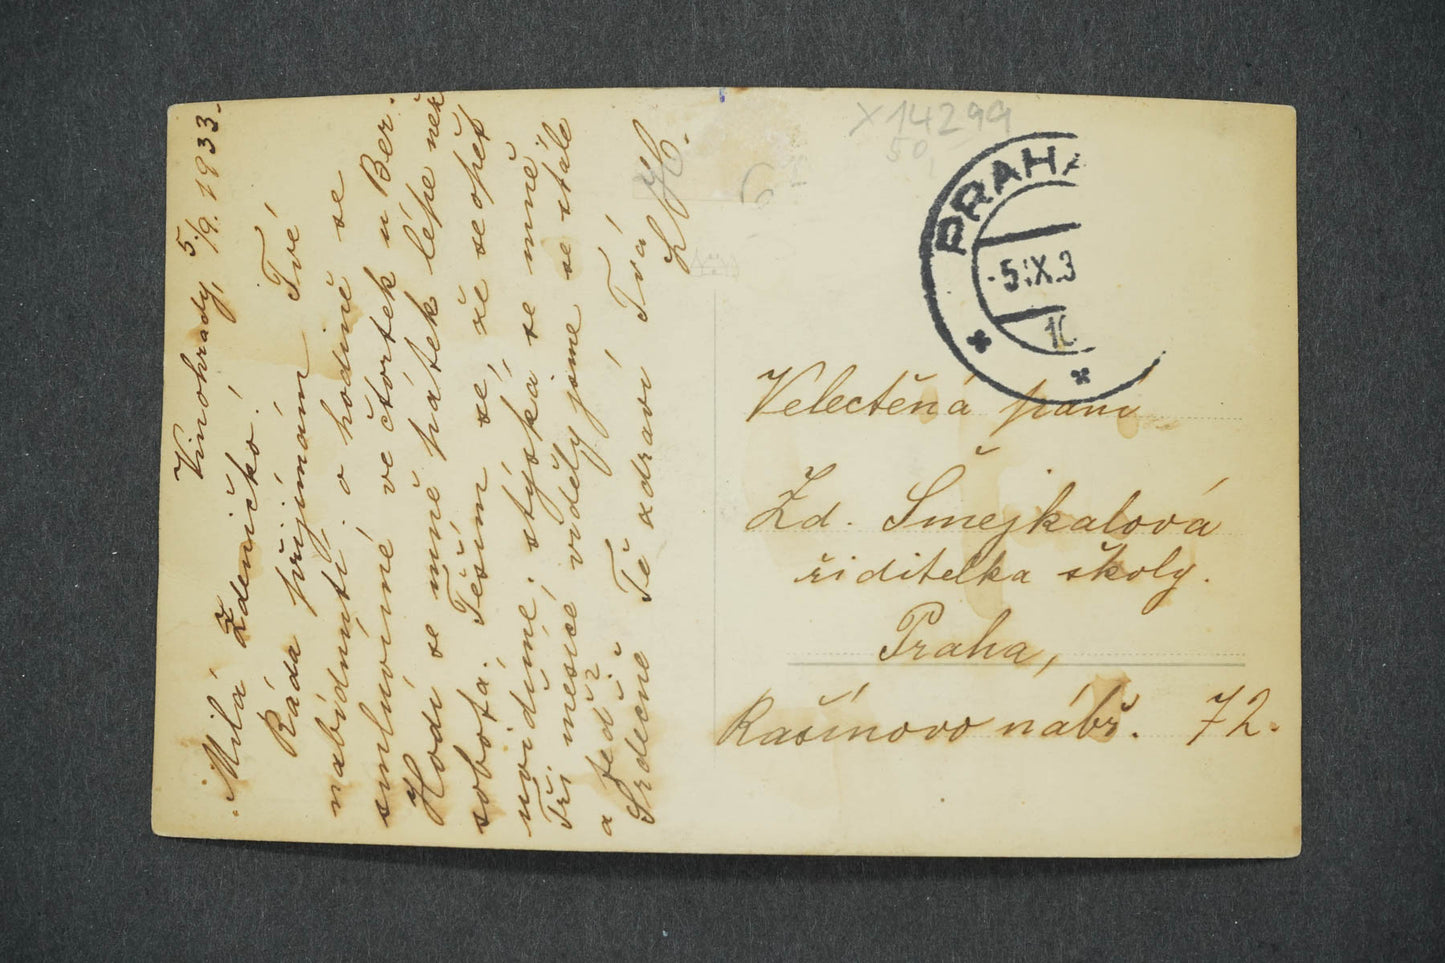 Vinohrady, 5./9. 1933.
Milá Zdeničko!
Ráda přijímám Tvé
nabídnutí o hodině se
smluvíme ve čtvrtek u Ber.
Hodí se mně pátek lépe než
sobota. Těším se, že se opět
uvidíme, stýská se mně.
Tři měsíce viděly jsme se stále
a teď?
Srdečně Tě zdraví Tvá
X14299
50,
PRAHA
-5.IX.3
10
Velectěná paní
Zd. Šmejkalová
řiditelka školy.
Praha,
Rašínovo nábř. 72.